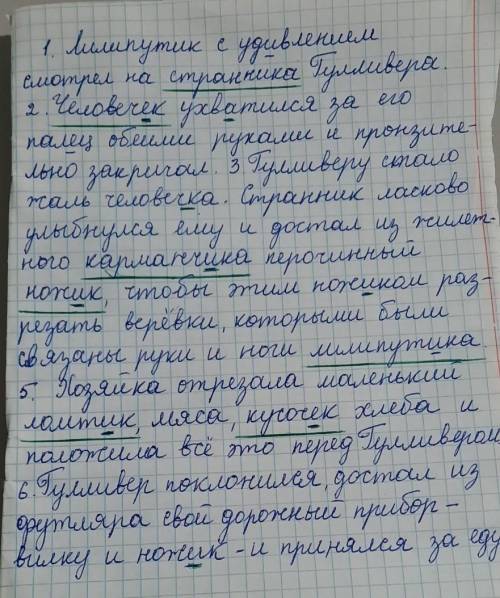 1. Лилипутик с удивлением
смотрел на странника Гулливера.
2. Человечек ухватился за его
палец обеими руками и пронзите-
льно закричал. 3 Гулливеру стало
жаль человечка. Странник ласково
улыбнулся ему и достал из жилет-
ного карманчика перочинный
ножик, чтобы этим ножиком раз-
резать верёвки, которыми были
связаны руки и ноги лилипутика.
5. Хозяйка отрезала маленький
ломтик, мяса, кусочек хлеба и
положила всё это перед Гулливером
6. Гулливер поклонился, достал из
футляра свой дорожный прибор-
вилку и ножик - и принялся за еду